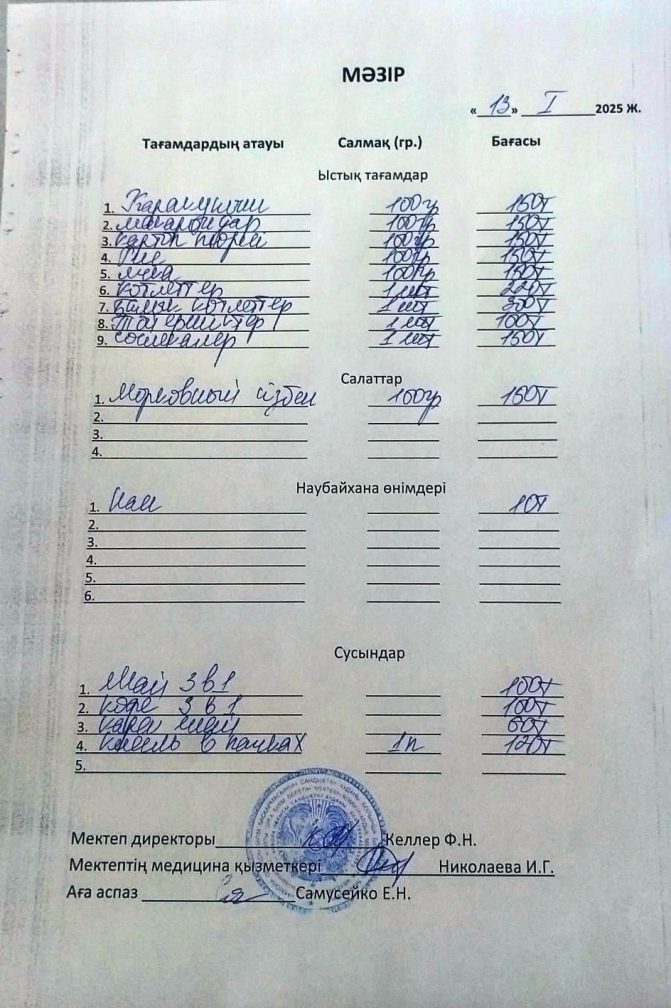 МӘЗІР
« 13 » I 2025 Ж.
Тағамдардың атауы Салмақ (гр.) Бағасы
Ыстық тағамдар
1. 100гр 150т
2. макарондар 100гр 150т
3. картоп пюрей 100гр 150т
4. Рис 100гр 150т
5. 100гр 150т
6. котлеттер 1 шт 220т
7. Балық котлеттер 1 шт 300т
8. Тефтельдер 1 шт 100т
9. сосискалер 1 шт 150т
Салаттар
1. Морковный сәзбен 100гр 150т
2.
3.
4.
Наубайхана өнімдері
1. Нан 10т
2.
3.
4.
5.
6.
Сусындар
1. Шай 3 в 1 100т
2. кофе 3 в 1 100т
3. қара шай 60т
4. кисель в пачках 1п 120т
5.
Мектеп директоры Келлер Ф.Н.
Мектептің медицина қызметкері Николаева И.Г.
Аға аспаз Самусейко Е.Н.